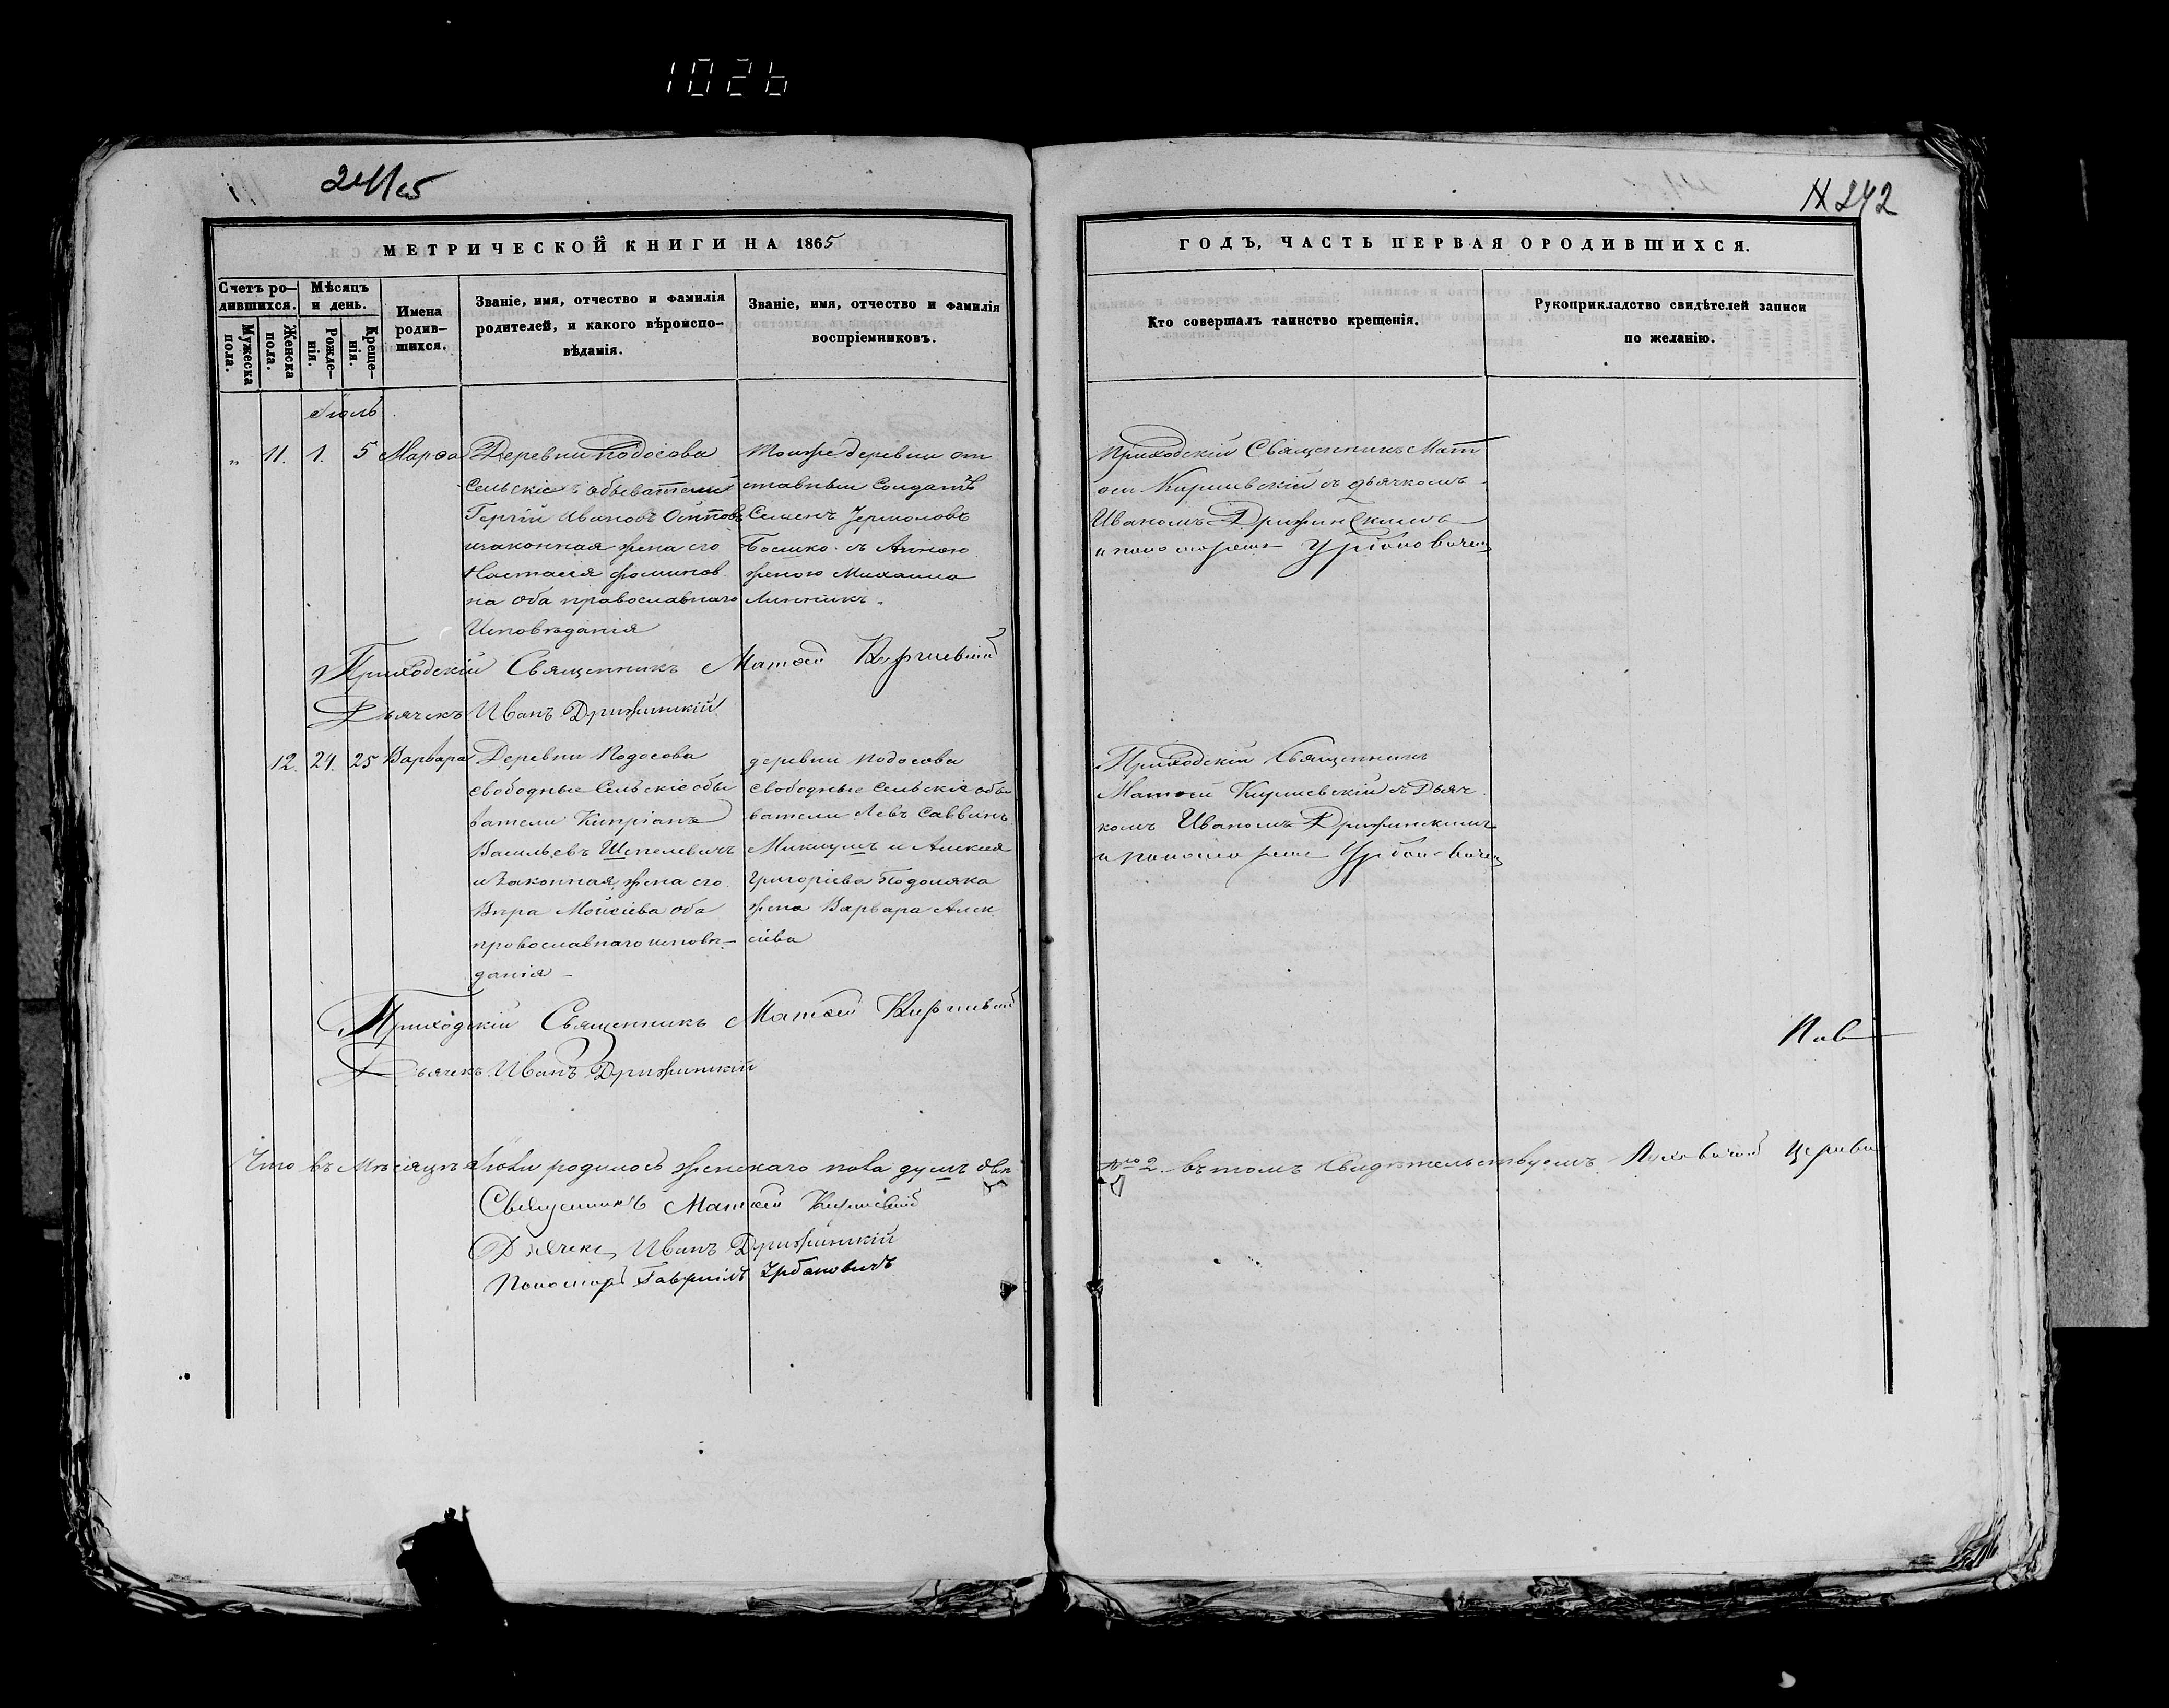 1026
N 242
МЕТРИЧЕСКОЙ КНИГИ НА 1865
ГОДЪ, ЧАСТЬ ПЕРВАЯ ОРОДИВШИХСЯ.
Счетъ ро-
дившихся.
Мужеска
пола.
Женска
пола.
Мѣсяцъ
и день.
Рожде-
нія.
Креще-
нія.
Имена
родив-
шихся.
Званіе, имя, отчество и фамилія
родителей, и какого вѣроиспо-
вѣданія.
Званіе, имя, отчество и фамилія
воспріемниковъ.
Кто совершалъ таинство крещенія.
Рукоприкладство свидѣтелей записи
по желанію.
Іюль
„ 11. 1. 5 Марѳа
Деревни Подосова
Сельскіе обыватели
Иванов
изаконная жена его
Настасія Фоминов
на оба православнаго
Исповѣданія
Тойже деревни от
ставный Солдатъ
Семенъ Ермоловъ
Бошко съ Анною
женою Михаила
Линникъ.
Приходскій Священникъ Мат
ѳей Киршевскій съ дьячкомъ
Иваномъ Дрижинскимъ
и пономаремъ Урбановичем
Приходскій Священникъ Матѳей Киршевскій
Дьячекъ Иванъ Дрижинскій
12. 24. 25 Варвара
Деревни Подосова
свободные Сельскіе обы
ватели Кипріанъ
Васильевъ Шепелевичъ
изаконная жена его
Вѣра Мойсіева оба
православнаго исповѣ-
данія
деревни Подосова
Свободные Сельскіе обы
ватели Левъ Саввинъ
Микулъ и Алексія
Григоріева Подоляка
жена Варвара Алек
сіева
Приходскій Священникъ
Матѳей Киршевскій съ Дьяч
комъ Иваномъ Дрижинскимъ
и пономаремъ Урбановичем
Приходскій Священникъ Матѳей Киршевскій
Дьячекъ Иванъ Дрижинскій
Что въ Мѣсяцѣ Іюли родилось женскаго пола душъ двѣ
№ 2 въ томъ Свидѣтельствуемъ Церкви
Священникъ Матѳей Киршевскій
Дьячекъ Иванъ Дрижинскій
Пономарь Гавріилъ Урбановичъ